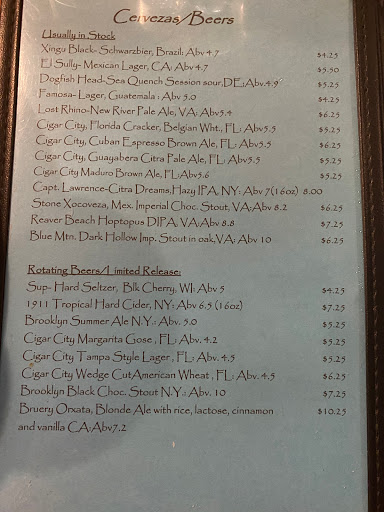 Cervezas/Beers
Usually in Stock
Xingu Black- Schwarzbier, Brazil: Abv 4.7 $4.25
El Sully- Mexican Lager, CA: Abv 4.7 $5.50
Dogfish Head-Sea Quench Session sour,DE;Abv.4.9 $5.25
Famosa- Lager, Guatemala : Abv 5.0 $4.25
Lost Rhino-New River Pale Ale, VA: Abv5.4 $6.25
Cigar City, Florida Cracker, Belgian Wht., FL: Abv5.5 $5.25
Cigar City, Cuban Espresso Brown Ale, FL: Abv5.5 $6.25
Cigar City, Guayabera Citra Pale Ale, FL: Abv5.5 $5.25
Cigar City Maduro Brown Ale, FL:Abv5.6 $5.25
Capt. Lawrence-Citra Dreams,Hazy IPA, NY: Abv 7(16oz) 8.00
Stone Xocoveza, Mex. Imperial Choc. Stout, VA:Abv 8.2 $6.25
Reaver Beach Hoptopus DIPA, VA:Abv 8.8 $7.25
Blue Mtn. Dark Hollow Imp. Stout in oak,VA: Abv 10 $6.25
Rotating Beers/Limited Release:
Sup- Hard Seltzer, Blk Cherry, WI: Abv 5 $4.25
1911 Tropical Hard Cider, NY: Abv 6.5 (16oz) $7.25
Brooklyn Summer Ale N.Y.: Abv. 5.0 $5.25
Cigar City Margarita Gose , FL: Abv. 4.2 $5.25
Cigar City Tampa Style Lager , FL: Abv. 4.5 $5.25
Cigar City Wedge CutAmerican Wheat , FL: Abv. 4.5 $6.25
Brooklyn Black Choc. Stout N.Y.: Abv. 10 $7.25
Bruery Orxata, Blonde Ale with rice, lactose, cinnamon $10.25
and vanilla CA:Abv7.2